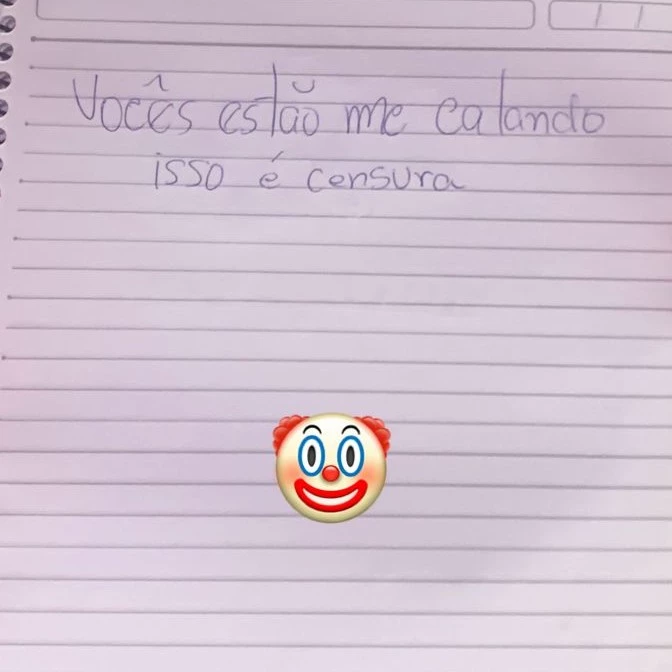 Vocês estão me calando
isso é censura